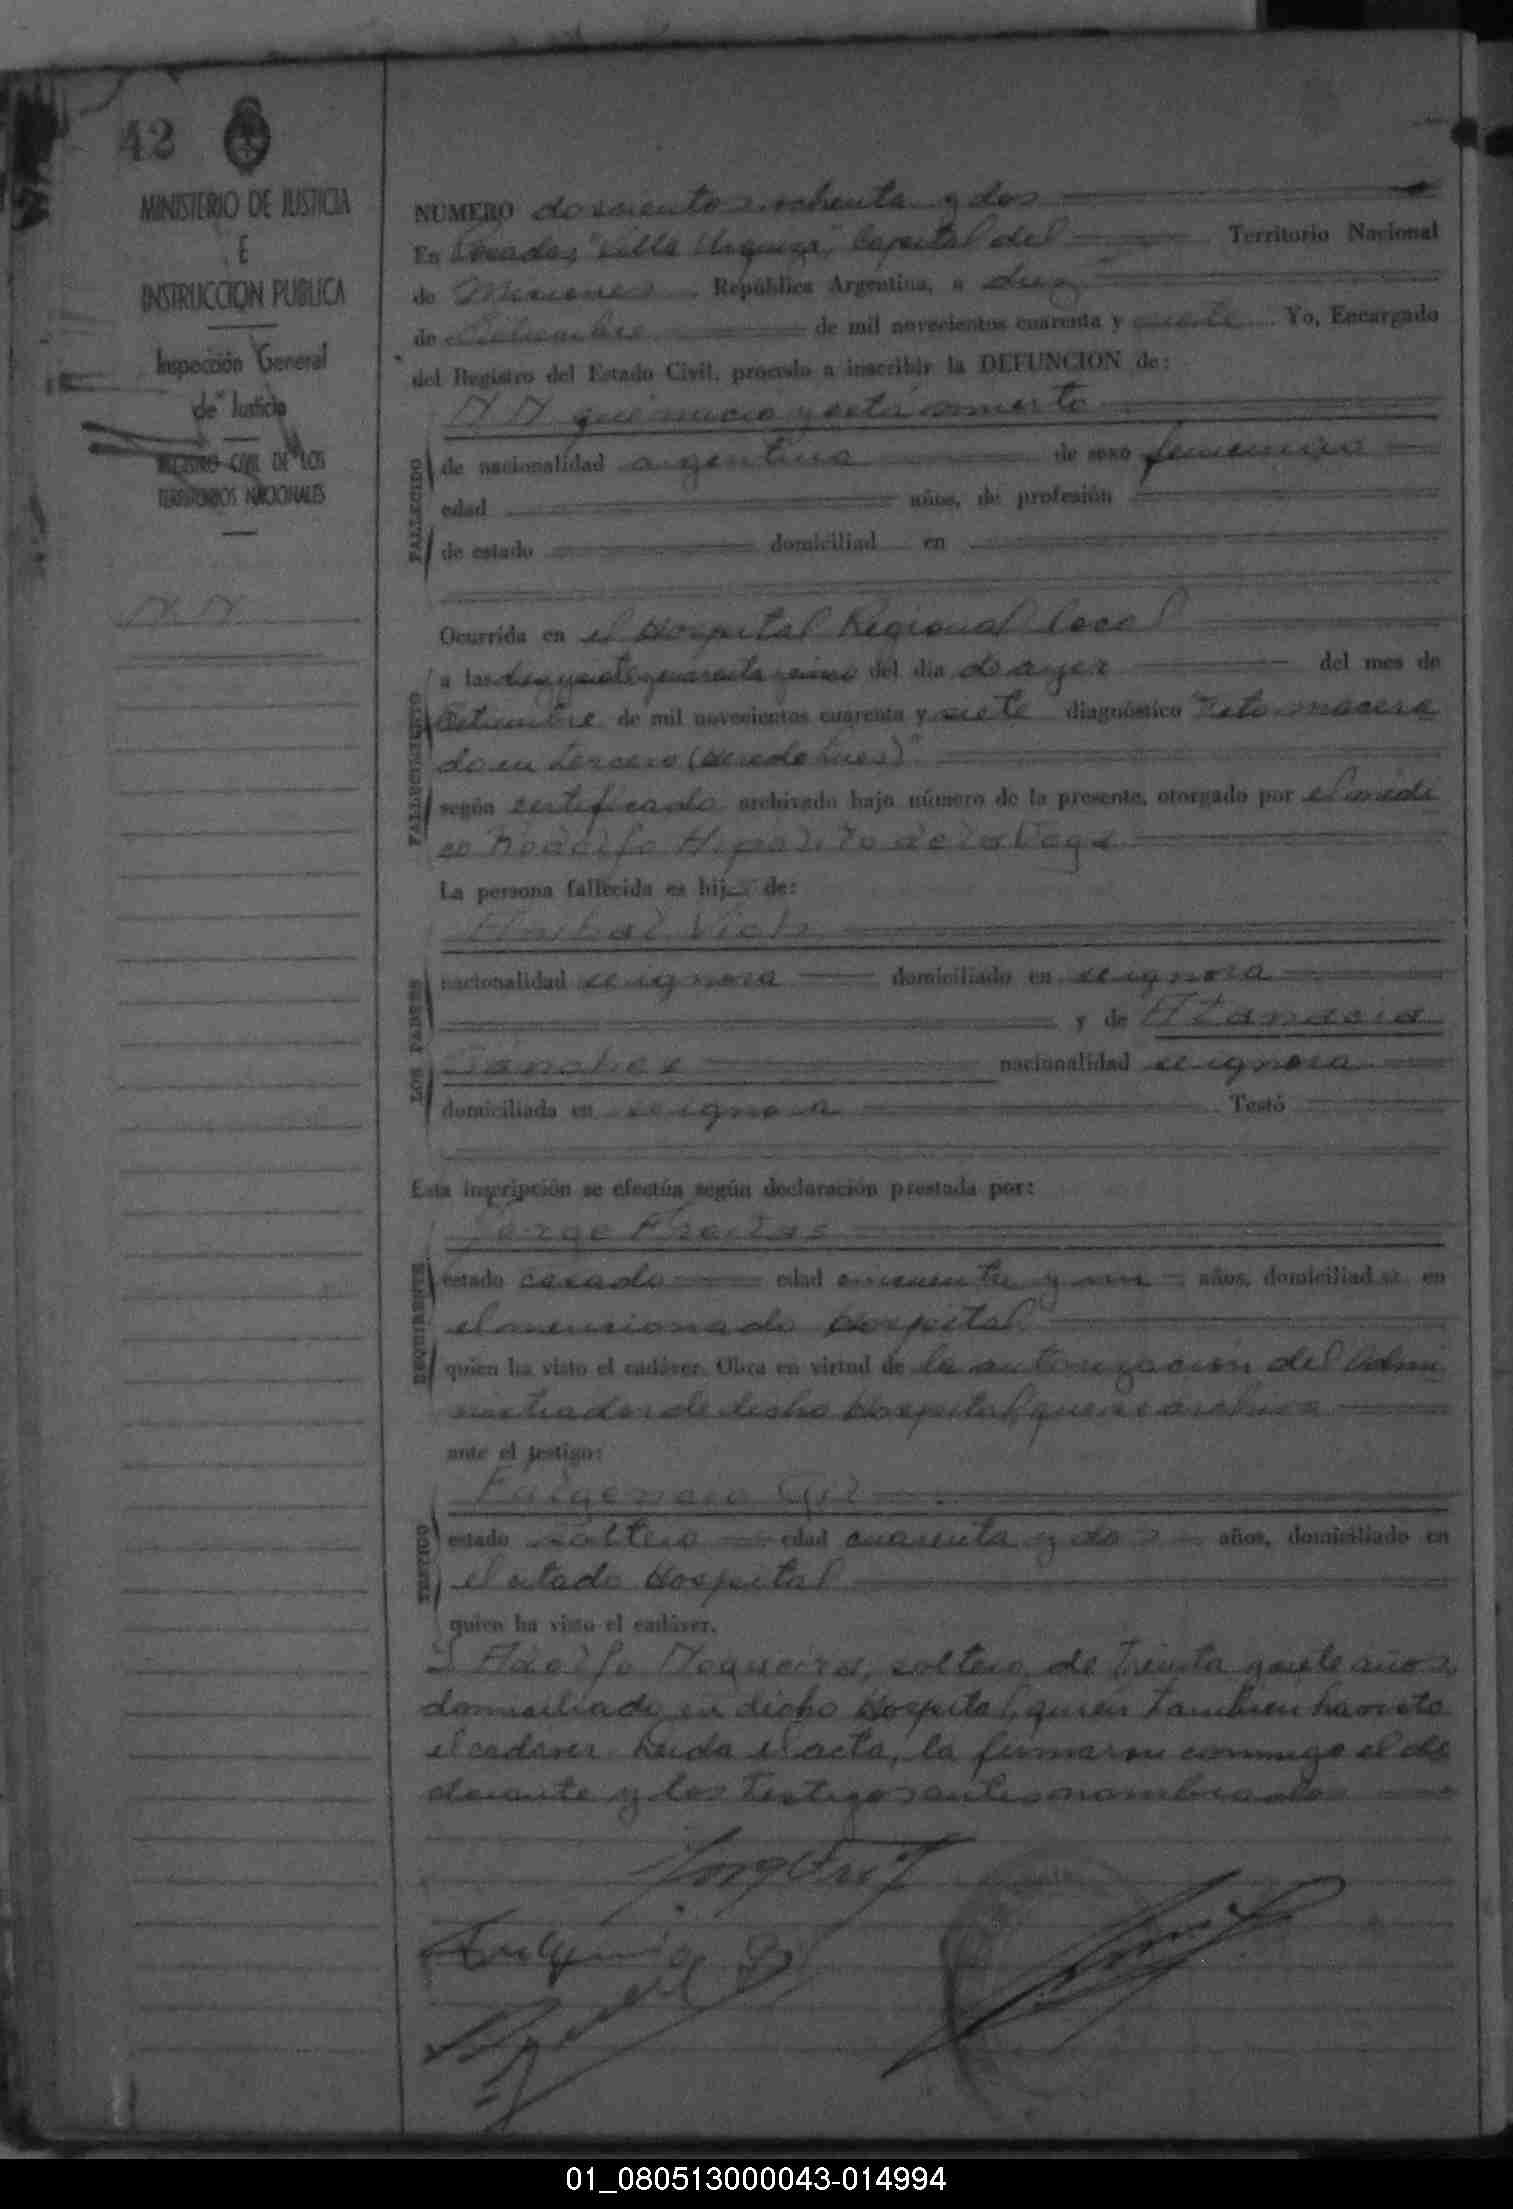 42
MINISTERIO DE JUSTICIA
E
INSTRUCCION PUBLICA
Inspección General
de Justicia
REGISTRO CIVIL DE LOS
TERRITORIOS NACIONALES
N N
NUMERO doscientos ochenta y dos
En Posadas, "Villa Urquiza", Capital del Territorio Nacional
de Misiones República Argentina, a diez
de de mil novecientos cuarenta y siete Yo, Encargado
del Registro del Estado Civil, procedo a inscribir la DEFUNCION de:
N N que nació y está muerto
FALLECIDO
de nacionalidad argentina de sexo femenino
edad años, de profesión
de estado domiciliad en
FALLECIMIENTO
Ocurrida en el Hospital Regional local
a las diez y siete y cuarenta y cinco del día de ayer del mes de
de mil novecientos cuarenta y siete diagnóstico "Feto macera
do en tercero (Heredo Lues)"
según certificado archivado bajo número de la presente, otorgado por el médi
co Rodolfo Hipolito de la Vega
La persona fallecida es hija de:
LOS PADRES
Anibal
nacionalidad se ignora domiciliado en se ignora
y de Atanacia
Sanchez nacionalidad se ignora
domiciliada en se ignora Testó
Esta inscripción se efectúa según declaración prestada por:
REQUIRENTE
Jorge Freitas
estado casado edad cincuenta y un años, domiciliado en
el mencionado Hospital
quien ha visto el cadáver. Obra en virtud de la autorización del Admi
nistrador de dicho Hospital, que se archiva
ante el testigo:
TESTIGO
Fulgencio Gil
estado soltero edad cuarenta y dos años, domiciliado en
el citado Hospital
quien ha visto el cadáver.
Y Adolfo Nogueira, soltero, de treinta y siete años,
domiciliado en dicho Hospital, quien tambien ha visto
el cadaver. Leida el acta, la firmaron conmigo el de
clarante y los testigos antes nombrados
01_080513000043-014994